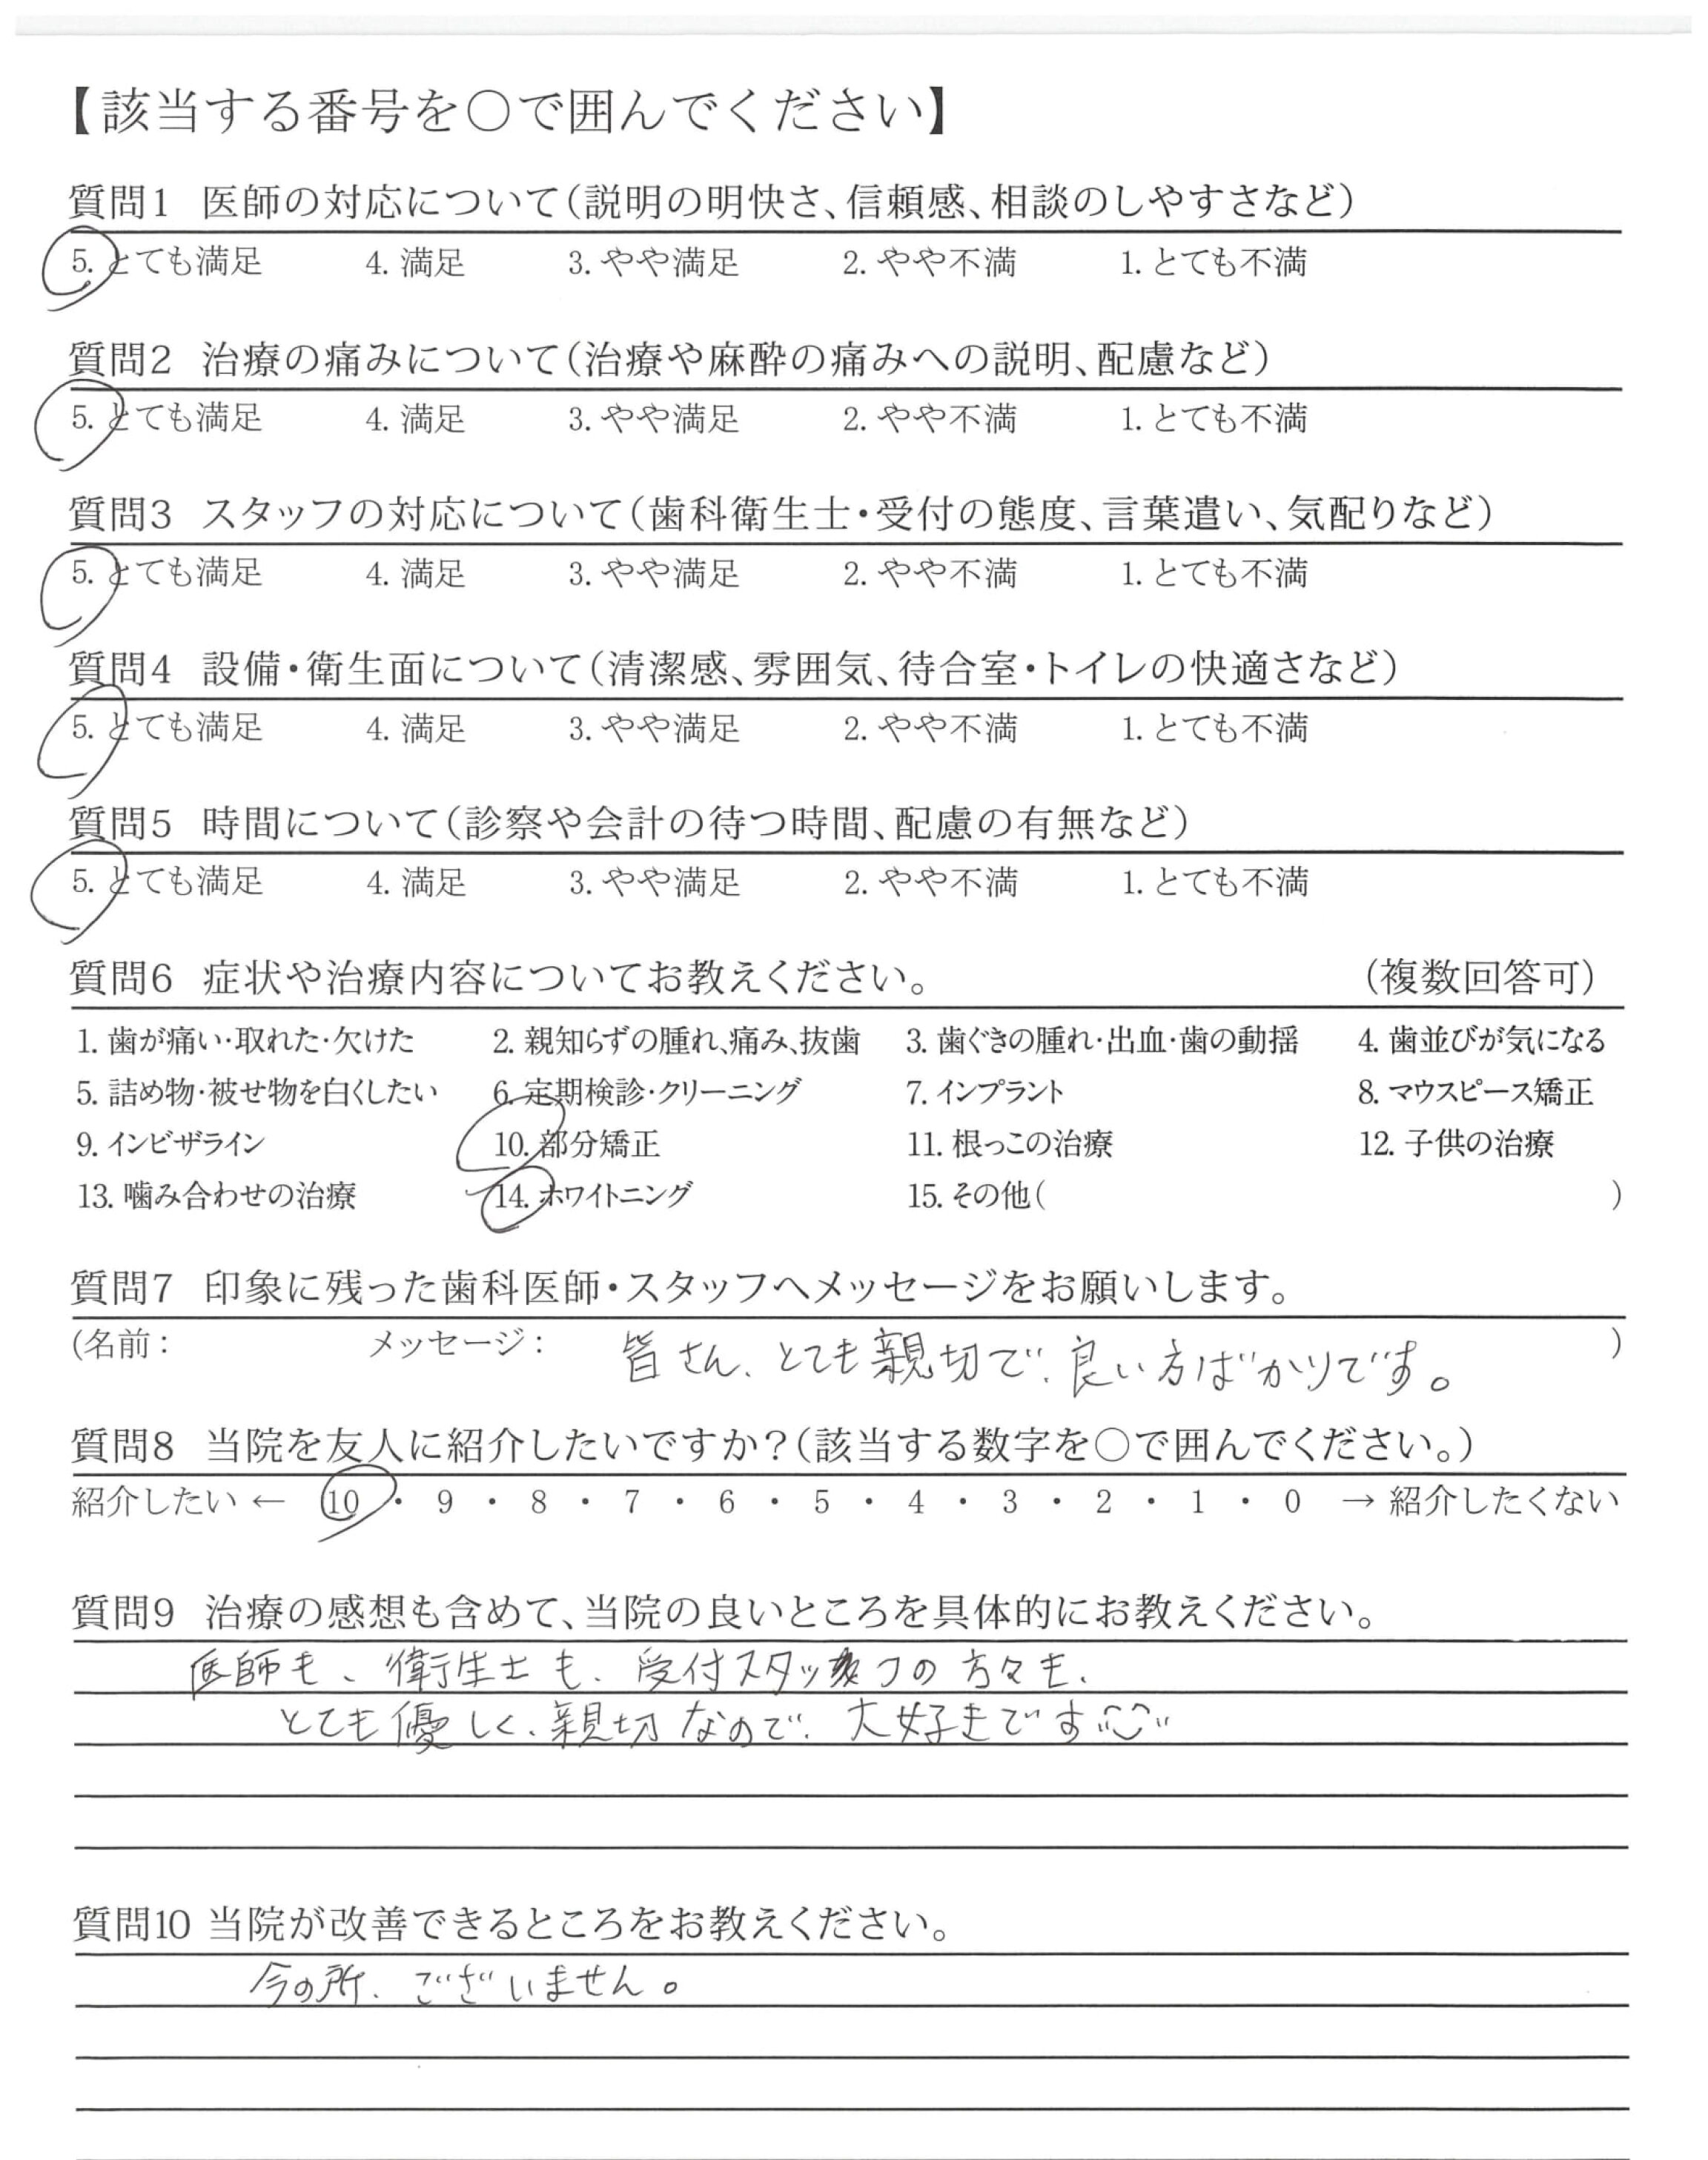 【該当する番号を○で囲んでください】
質問1 医師の対応について(説明の明快さ、信頼感、相談のしやすさなど)
5. とても満足 4. 満足 3. やや満足 2. やや不満 1. とても不満
質問2 治療の痛みについて(治療や麻酔の痛みへの説明、配慮など)
5. とても満足 4. 満足 3. やや満足 2. やや不満 1. とても不満
質問3 スタッフの対応について(歯科衛生士・受付の態度、言葉遣い、気配りなど)
5. とても満足 4. 満足 3. やや満足 2. やや不満 1. とても不満
質問4 設備・衛生面について(清潔感、雰囲気、待合室・トイレの快適さなど)
5. とても満足 4. 満足 3. やや満足 2. やや不満 1. とても不満
質問5 時間について(診察や会計の待つ時間、配慮の有無など)
5. とても満足 4. 満足 3. やや満足 2. やや不満 1. とても不満
質問6 症状や治療内容についてお教えください。 (複数回答可)
1. 歯が痛い・取れた・欠けた 2. 親知らずの腫れ、痛み、抜歯 3. 歯ぐきの腫れ・出血・歯の動揺 4. 歯並びが気になる
5. 詰め物・被せ物を白くしたい 6. 定期検診・クリーニング 7. インプラント 8. マウスピース矯正
9. インビザライン 10. 部分矯正 11. 根っこの治療 12. 子供の治療
13. 噛み合わせの治療 14. ホワイトニング 15. その他( )
質問7 印象に残った歯科医師・スタッフへメッセージをお願いします。
(名前: メッセージ: 皆さん、とても親切で、良い方ばかりです。 )
質問8 当院を友人に紹介したいですか?(該当する数字を○で囲んでください。)
紹介したい ← 10 ・ 9 ・ 8 ・ 7 ・ 6 ・ 5 ・ 4 ・ 3 ・ 2 ・ 1 ・ 0 → 紹介したくない
質問9 治療の感想も含めて、当院の良いところを具体的にお教えください。
医師も、衛生士も、受付スタッフの方々も、
とても優しく、親切なので、大好きです
質問10 当院が改善できるところをお教えください。
今の所、ございません。